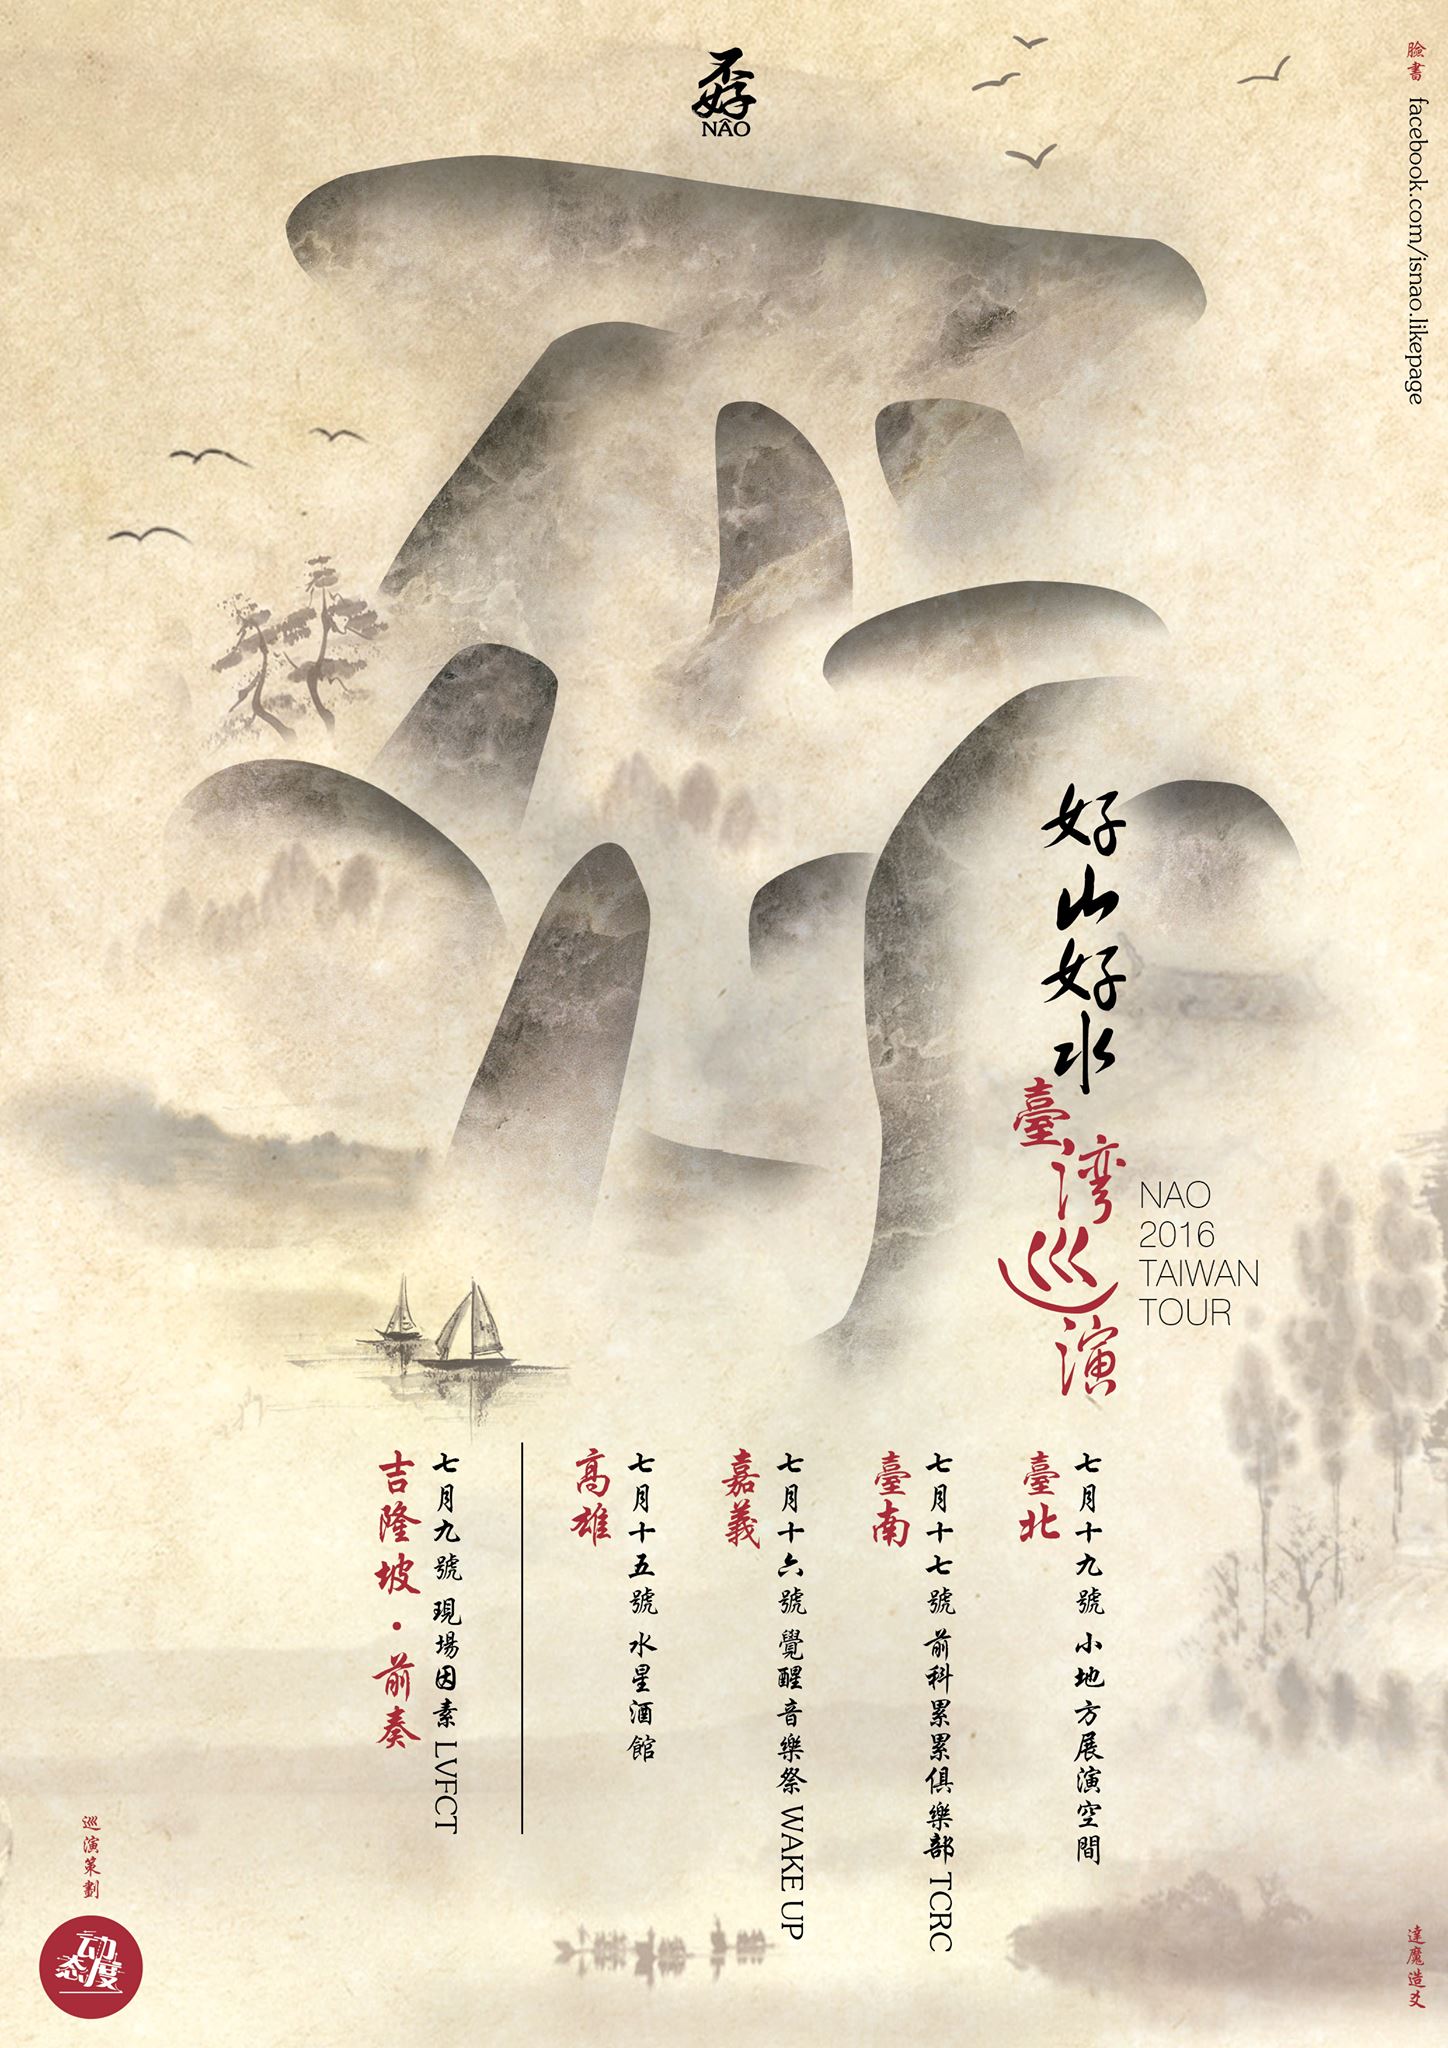 孬
NÂO
臉書 facebook.com/isnao.likepage
好山好水
臺灣巡演
NAO
2016
TAIWAN
TOUR
七月十九號 小地方展演空間
臺北
七月十七號 前科累累俱樂部 TCRC
臺南
七月十六號 覺醒音樂祭 WAKE UP
嘉義
七月十五號 水星酒館
高雄
七月九號 現場因素 LVFCT
吉隆坡·前奏
巡演策劃
动态度
達魔造爻